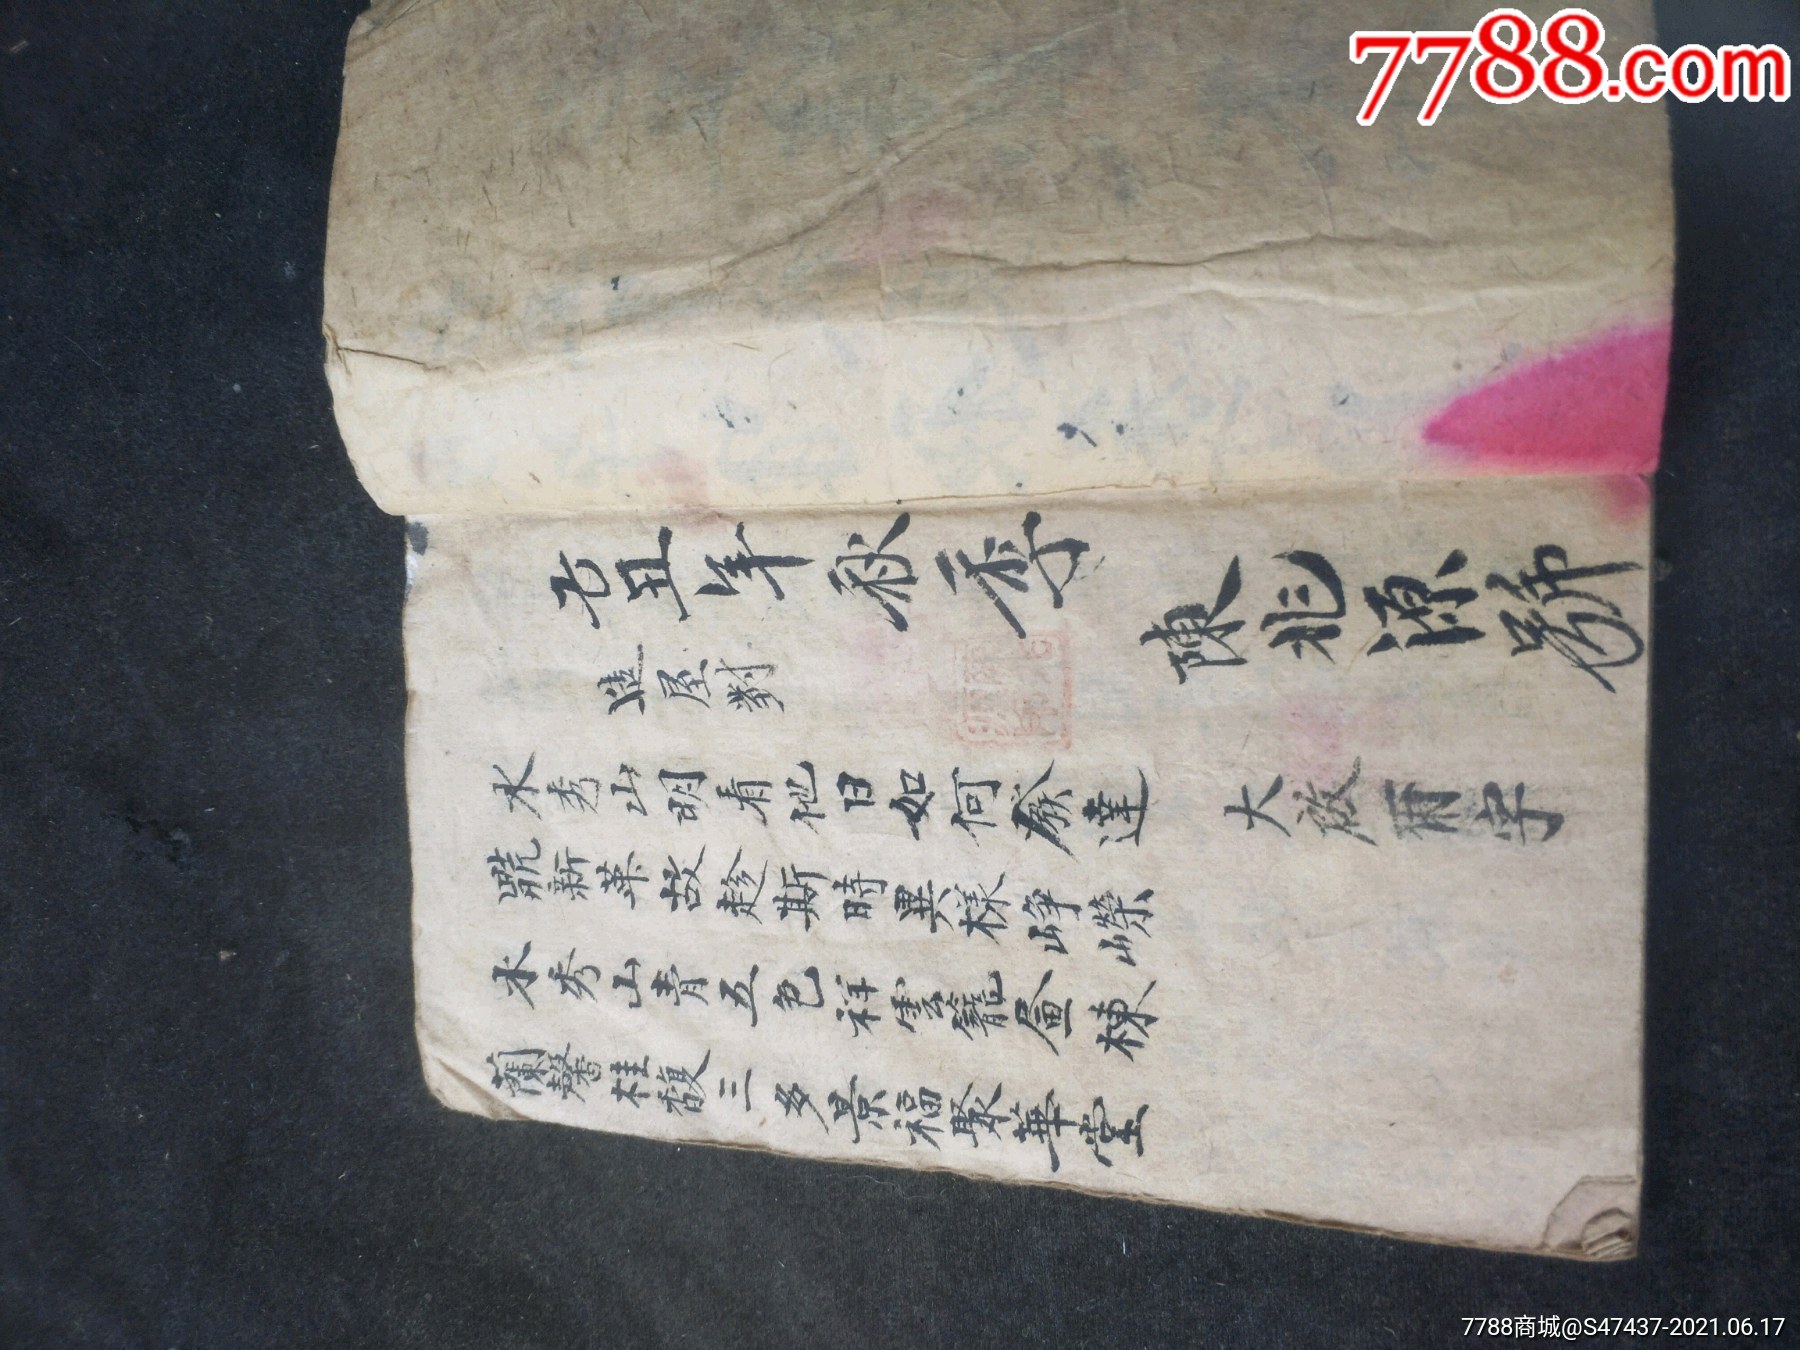 丑年秋季
陳兆源號
造屋對
大啟爾宇
水秀山明看他日如何發達
鼎新革故趁斯時異樣崢嶸
水秀山青五色祥雲籠畫棟
蘭馨桂馥三多景福聚華堂
7788.com
7788商城@S47437-2021.06.17